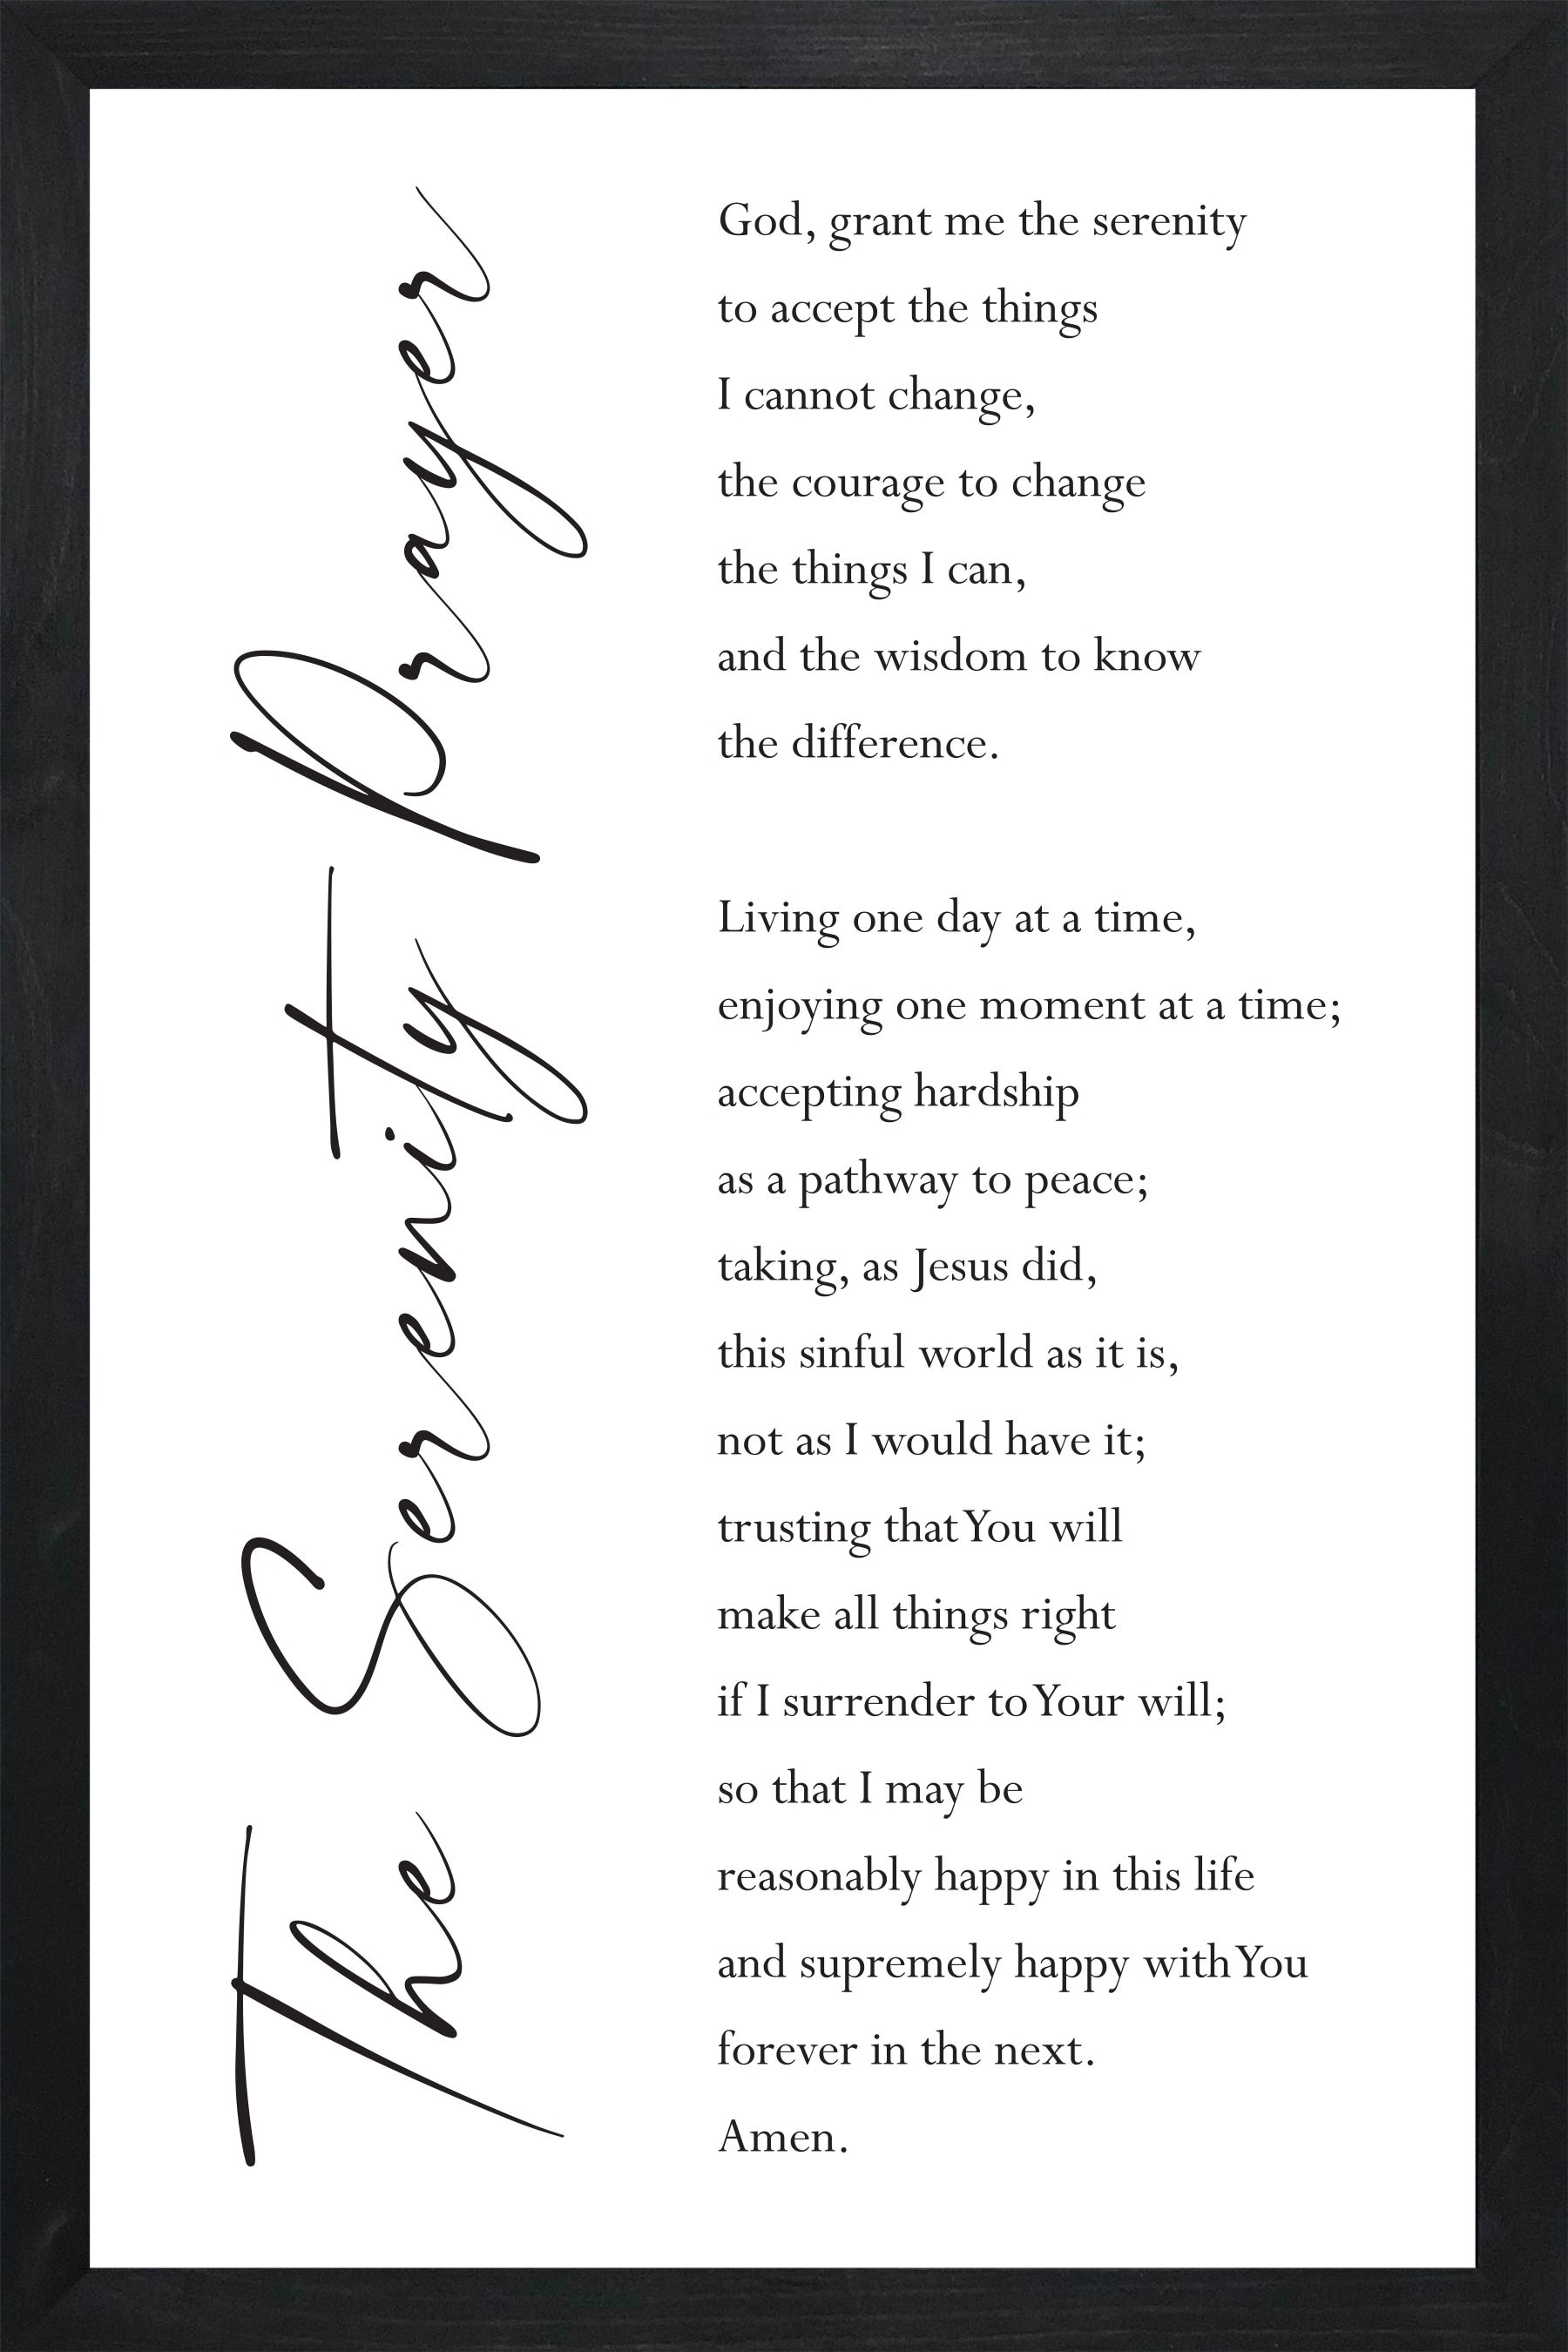 The Serenity Prayer
God, grant me the serenity
to accept the things
I cannot change,
the courage to change
the things I can,
and the wisdom to know
the difference.
Living one day at a time,
enjoying one moment at a time;
accepting hardship
as a pathway to peace;
taking, as Jesus did,
this sinful world as it is,
not as I would have it;
trusting that You will
make all things right
if I surrender to Your will;
so that I may be
reasonably happy in this life
and supremely happy with You
forever in the next.
Amen.